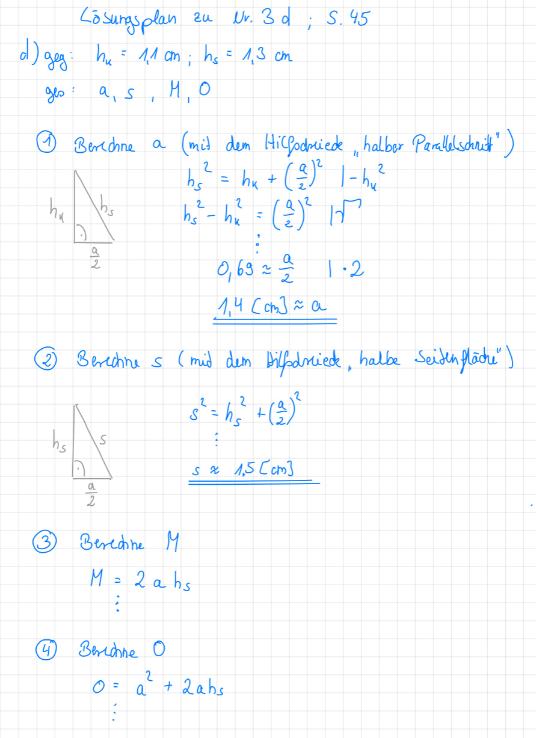 Lösungsplan zu Nr. 3 d ; S. 45
d) geg: hₖ = 1,1 cm ; hₛ = 1,3 cm
ges: a, s, M, O
① Berechne a (mit dem Hilfsdreieck „halber Parallelschnitt")
hₛ² = hₖ + (a/2)² | - hₖ²
hₛ² - hₖ² = (a/2)² | √
⋮
0,69 ≈ a/2 | · 2
1,4 [cm] ≈ a
hₖ
hₛ
a/2
② Berechne s (mit dem Hilfsdreieck „halbe Seitenfläche")
s² = hₛ² + (a/2)²
⋮
s ≈ 1,5 [cm]
hₛ
s
a/2
③ Berechne M
M = 2 a hₛ
⋮
④ Berechne O
O = a² + 2ahₛ
⋮